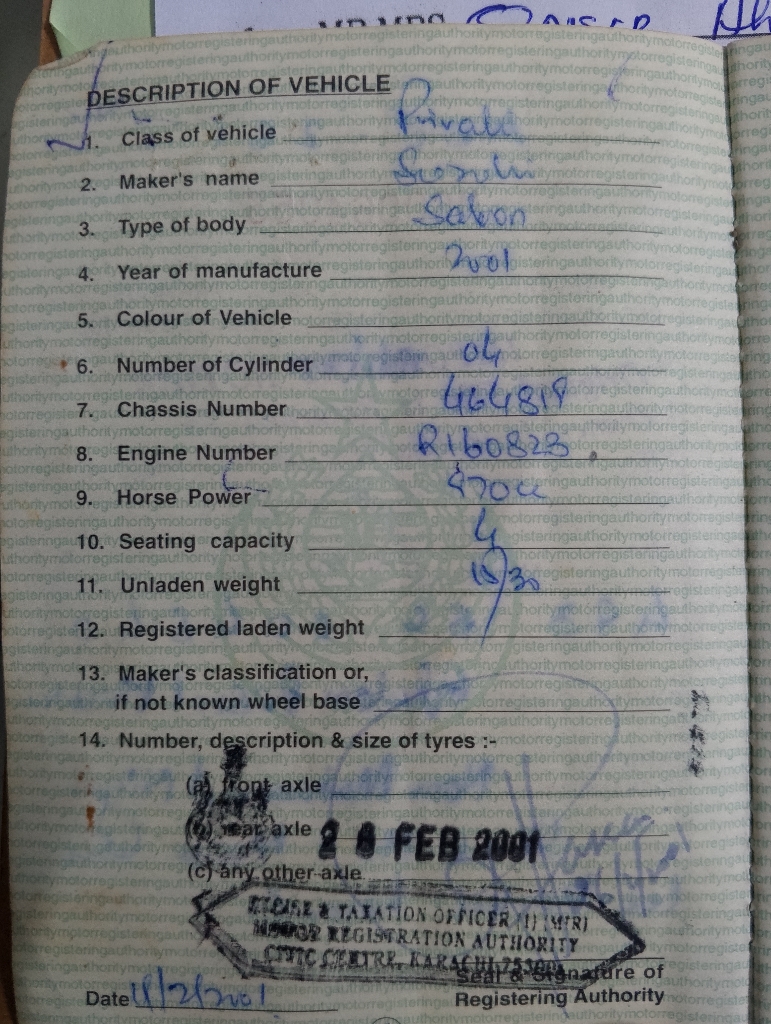 MR MRS
DESCRIPTION OF VEHICLE
1. Class of vehicle Private
2. Maker's name Suzuki
3. Type of body Saloon
4. Year of manufacture 2001
5. Colour of Vehicle
6. Number of Cylinder 04
7. Chassis Number 464819
8. Engine Number R160823
9. Horse Power
10. Seating capacity 4
11. Unladen weight
12. Registered laden weight
13. Maker's classification or,
if not known wheel base
14. Number, description & size of tyres :-
(a) front axle
(b) rear axle 28 FEB 2001
(c) any other axle
EXCISE & TAXATION OFFICER (1) (MR)
MOTOR REGISTRATION AUTHORITY
CIVIC CENTRE, KARACHI-75300
Seal & Signature of
Date
Registering Authority